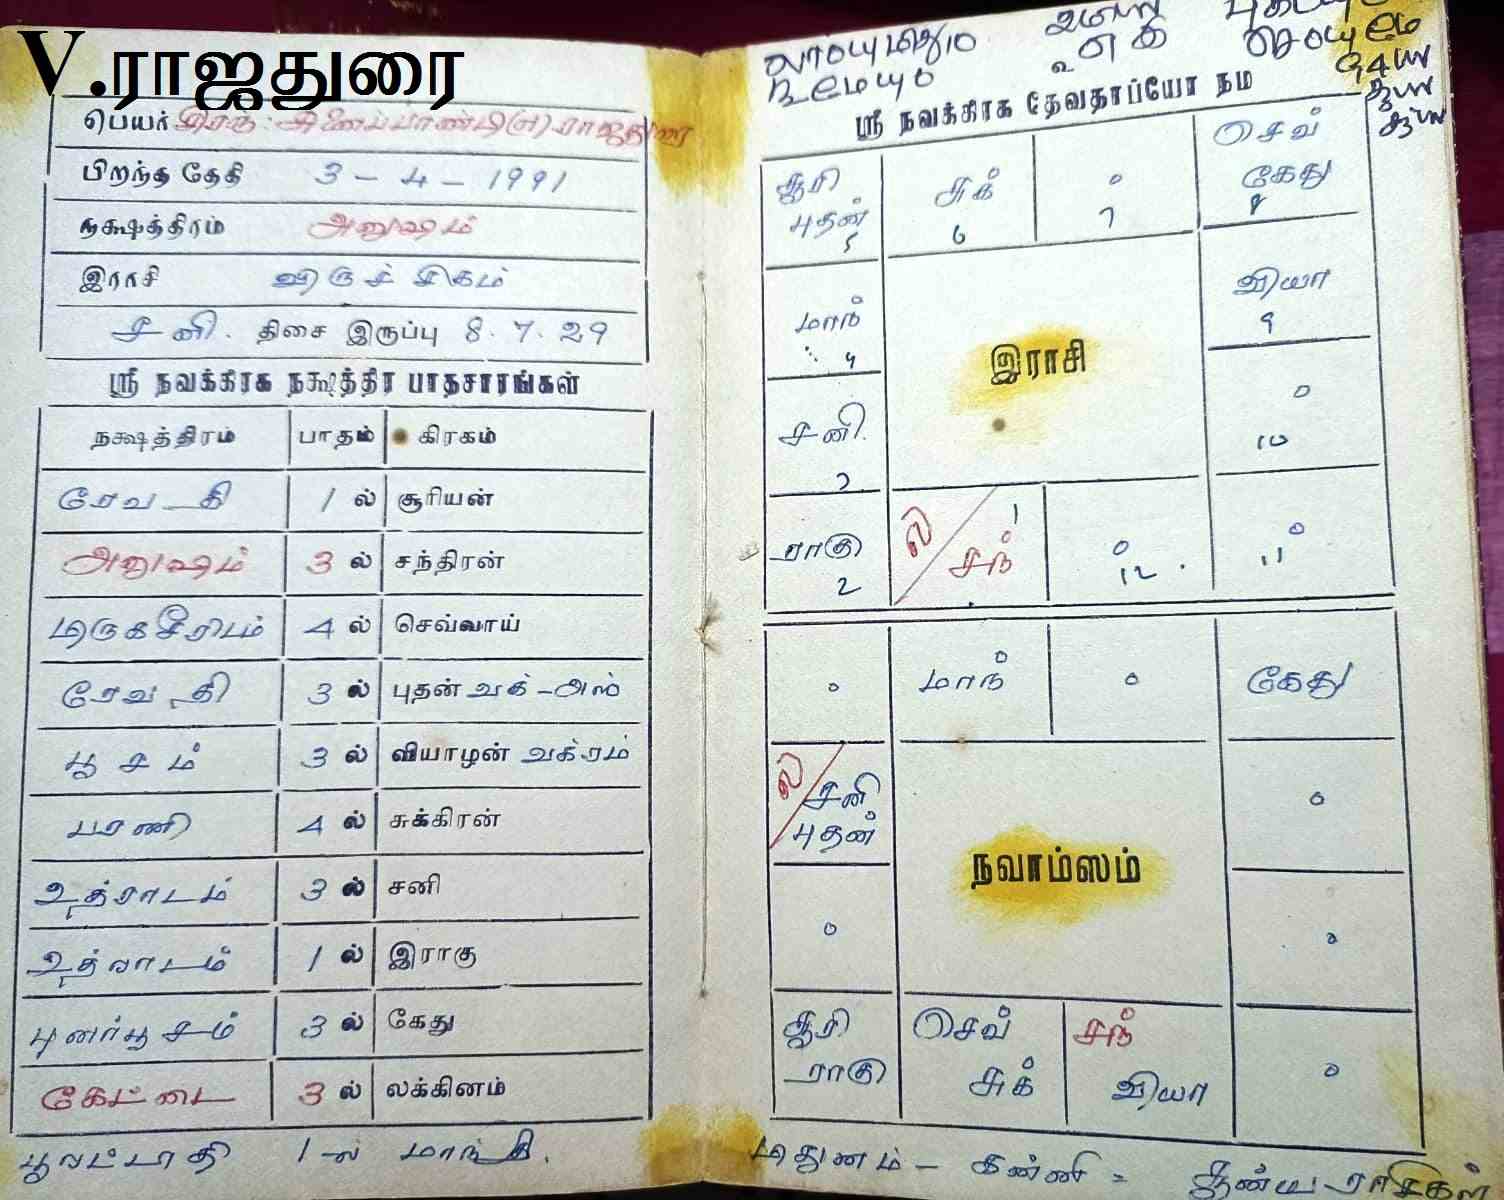 V.ராஜதுரை
பெயர் திரு. சினைப்பாண்டி(எ)ராஜதுரை
பிறந்த தேதி 3 - 4 - 1991
நக்ஷத்திரம் அனுஷம்
இராசி விருச்சிகம்
சனி. திசை இருப்பு 8.7.29
ஸ்ரீ நவக்கிரக நக்ஷத்திர பாதசாரங்கள்
நக்ஷத்திரம் பாதம் கிரகம்
ரேவதி 1 ல் சூரியன்
அனுஷம் 3 ல் சந்திரன்
மிருகசீரிடம் 4 ல் செவ்வாய்
ரேவதி 3 ல் புதன் வக்-அஸ்
பூசம் 3 ல் வியாழன் வக்ரம்
பரணி 4 ல் சுக்கிரன்
உத்ராடம் 3 ல் சனி
உத்ராடம் 1 ல் இராகு
புனர்பூசம் 3 ல் கேது
கேட்டை 3 ல் லக்கினம்
பூரட்டாதி 1-ல் மாந்தி.
ஸ்ரீ நவக்கிரக தேவதாப்யோ நம
சூரி சுக் ० செவ்
புதன் கேது
5 6 7 8
மாந் வியா
4 9
இராசி
சனி. ०
3 10
ராகு ல / சந் ० ०
2 1 12 11
० மாந் ० கேது
ல / சனி ०
புதன்
நவாம்ஸம்
० ०
சூரி செவ் சந் ०
ராகு சுக் வியா
மிதுனம் - கன்னி = சூன்ய ராசிகள்